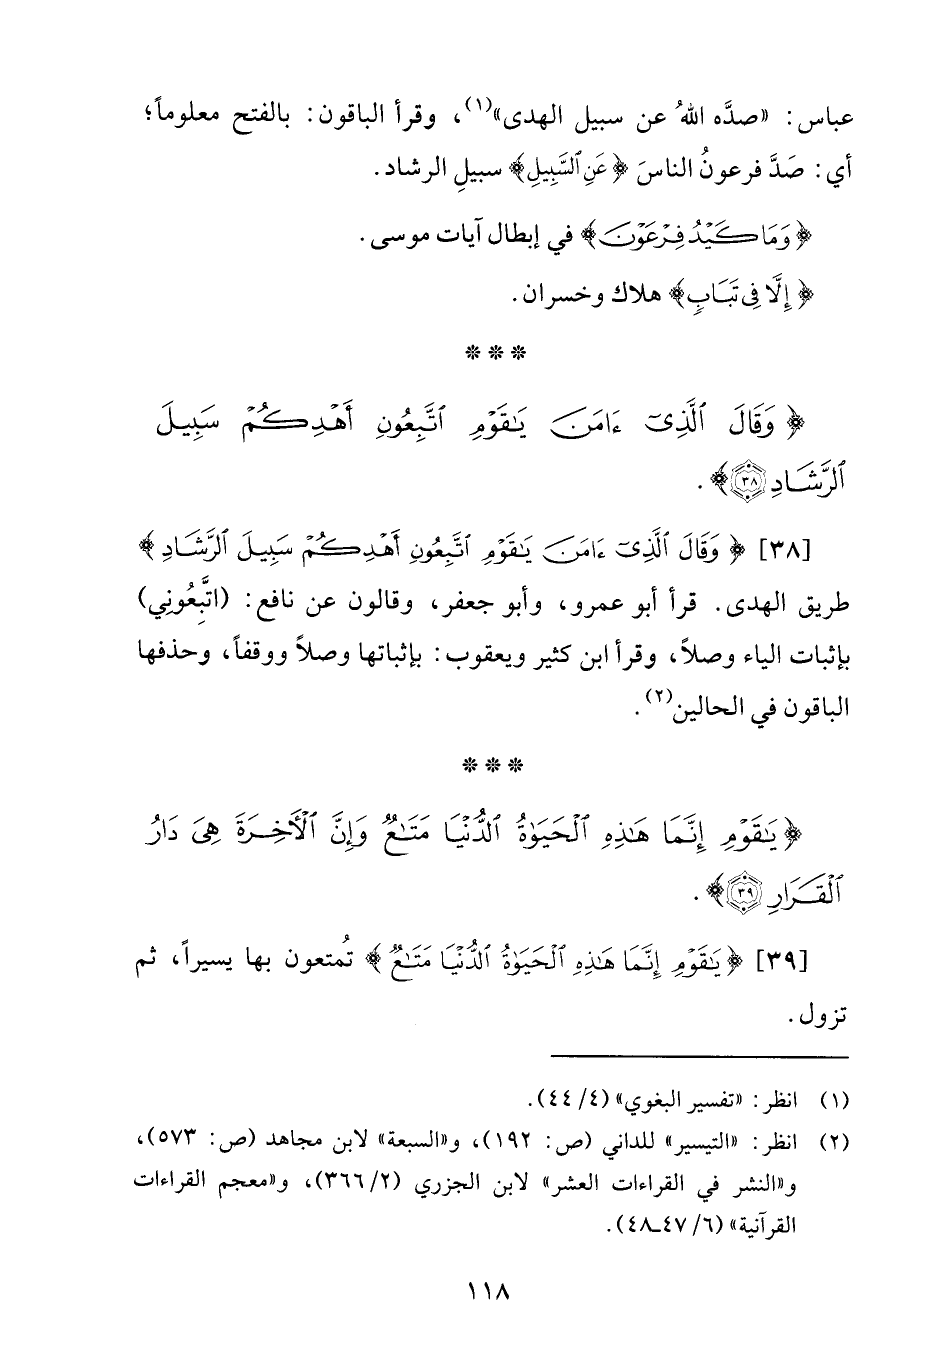 عباس: «صدَّه اللهُ عن سبيل الهدى»(١)، وقرأ الباقون: بالفتح معلوماً؛
أي: صَدَّ فرعونُ الناسَ ﴿عَنِ ٱلسَّبِيلِ﴾ سبيلِ الرشاد.
﴿وَمَا كَيْدُ فِرْعَوْنَ﴾ في إبطال آيات موسى.
﴿إِلَّا فِى تَبَابٍ﴾ هلاك وخسران.
* * *
﴿وَقَالَ ٱلَّذِىٓ ءَامَنَ يَـٰقَوْمِ ٱتَّبِعُونِ أَهْدِكُمْ سَبِيلَ
ٱلرَّشَادِ ٣٨﴾.
[٣٨] ﴿وَقَالَ ٱلَّذِىٓ ءَامَنَ يَـٰقَوْمِ ٱتَّبِعُونِ أَهْدِكُمْ سَبِيلَ ٱلرَّشَادِ﴾
طريق الهدى. قرأ أبو عمرو، وأبو جعفر، وقالون عن نافع: (اتَّبِعُونِي)
بإثبات الياء وصلاً، وقرأ ابن كثير ويعقوب: بإثباتها وصلاً ووقفاً، وحذفها
الباقون في الحالين(٢).
* * *
﴿يَـٰقَوْمِ إِنَّمَا هَـٰذِهِ ٱلْحَيَوٰةُ ٱلدُّنْيَا مَتَـٰعٌ وَإِنَّ ٱلْأَخِرَةَ هِىَ دَارُ
ٱلْقَرَارِ ٣٩﴾.
[٣٩] ﴿يَـٰقَوْمِ إِنَّمَا هَـٰذِهِ ٱلْحَيَوٰةُ ٱلدُّنْيَا مَتَـٰعٌ﴾ تُمتعون بها يسيراً، ثم
تزول.
(١) انظر: «تفسير البغوي» (٤/ ٤٤).
(٢) انظر: «التيسير» للداني (ص: ١٩٢)، و«السبعة» لابن مجاهد (ص: ٥٧٣)،
و«النشر في القراءات العشر» لابن الجزري (٢/ ٣٦٦)، و«معجم القراءات
القرآنية» (٦/ ٤٧ـ٤٨).
١١٨